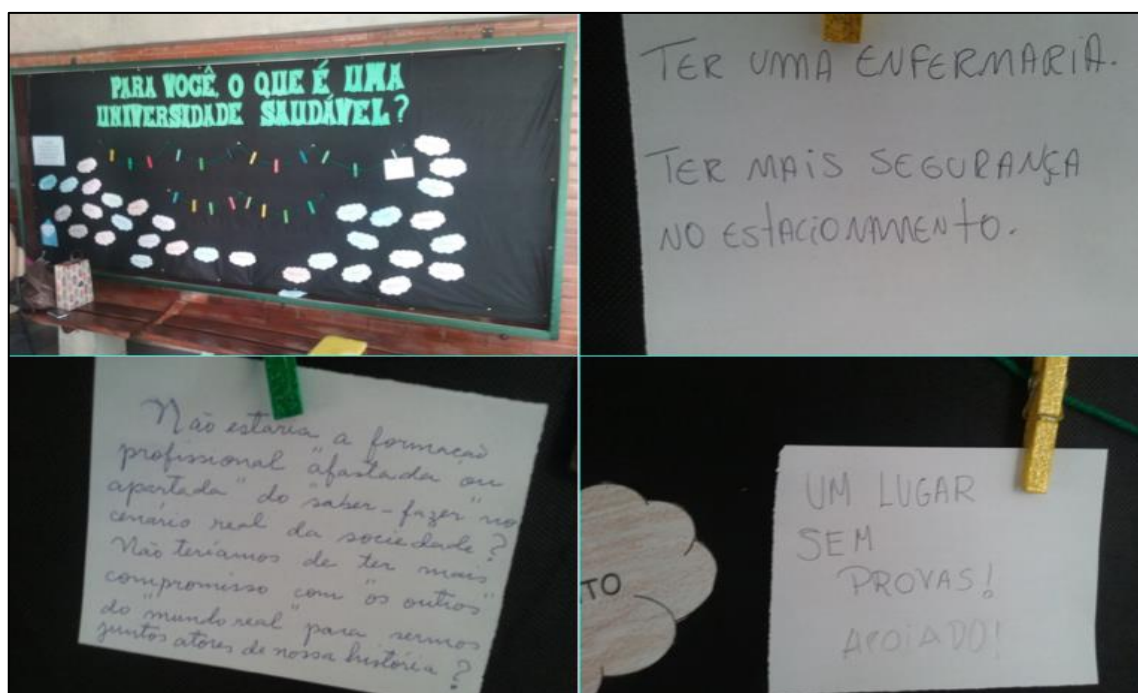 PARA VOCÊ, O QUE É UMA
UNIVERSIDADE SAUDÁVEL?
TER UMA ENFERMARIA.
TER MAIS SEGURANÇA
NO ESTACIONAMENTO.
Não estaria a formação
profissional "afastada ou
apartada" do "saber-fazer" no
cenário real da sociedade?
Não teríamos de ter mais
compromisso com "os outros"
do "mundo real" para sermos
juntos atores de nossa história?
TO
UM LUGAR
SEM
PROVAS!
APOIADO!